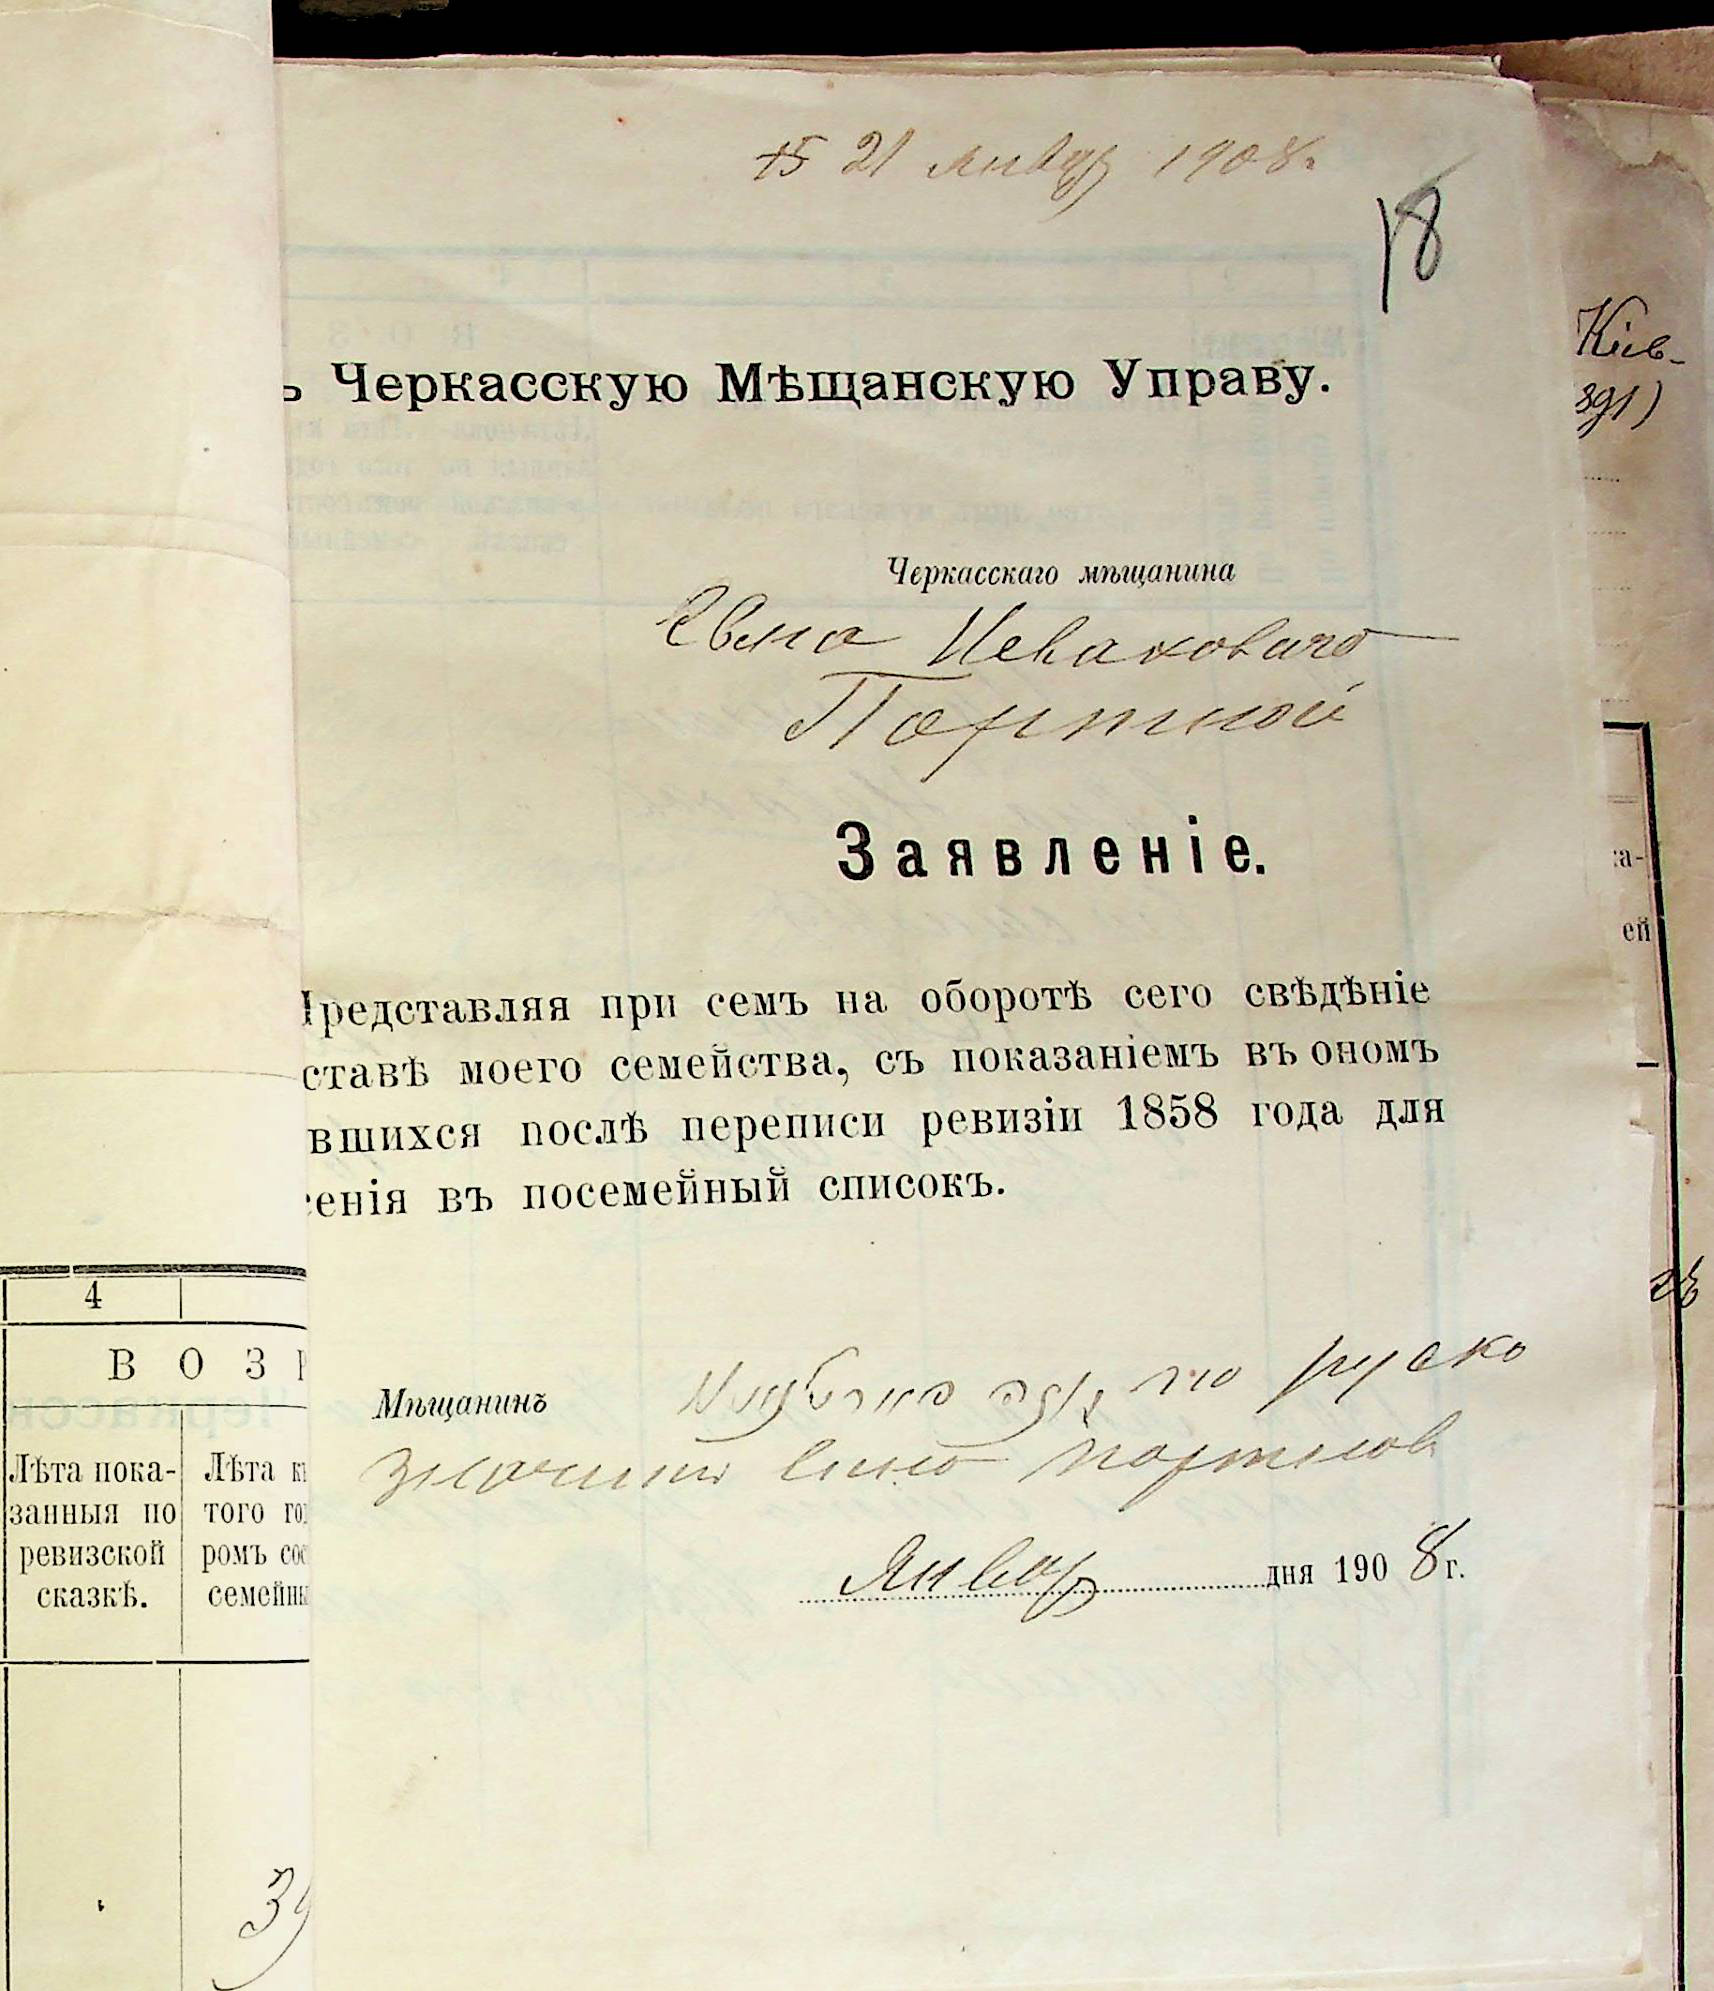 15 21 Январ 1908 г.
18
ъ Черкасскую Мѣщанскую Управу.
Кіев-
891)
Черкасскаго мѣщанина
Портной
Заявленіе.
Представляя при семъ на оборотѣ сего свѣдѣніе
ставѣ моего семейства, съ показаніемъ въ ономъ
вшихся послѣ переписи ревизіи 1858 года для
сенія въ посемейный списокъ.
ка-
ей
Мѣщанинъ по руско
Январ дня 1908 г.
4
ВОЗР
Лѣта пока-
занныя по
ревизской
сказкѣ.
Лѣта к
того го
ромъ сос
семейн
39